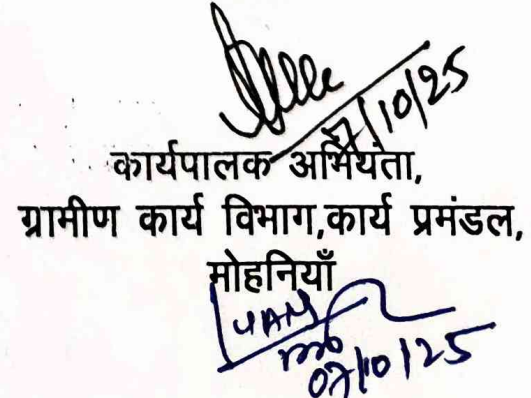 07/10/25
कार्यपालक अभियंता,
ग्रामीण कार्य विभाग,कार्य प्रमंडल,
मोहनियाँ
07/10/25